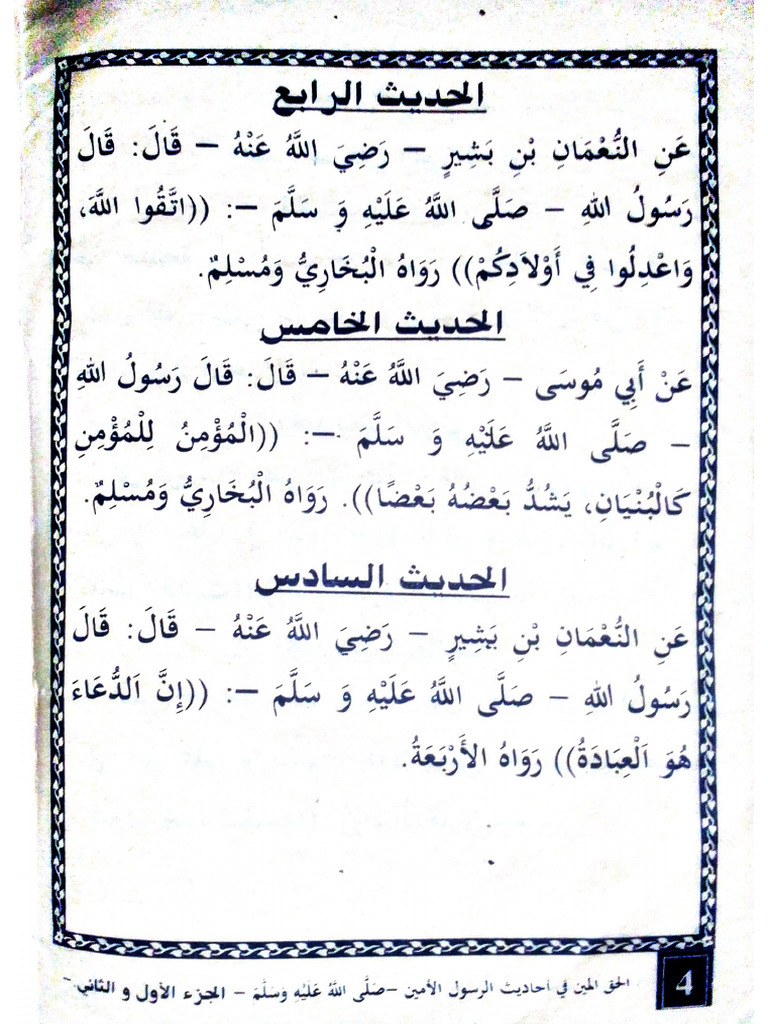 الحديث الرابع
عَنِ النُّعْمَانِ بْنِ بَشِيرٍ – رَضِيَ اللَّهُ عَنْهُ – قَالَ: قَالَ
رَسُولُ اللهِ – صَلَّى اللَّهُ عَلَيْهِ وَ سَلَّمَ –: ((اتَّقُوا اللَّهَ،
وَاعْدِلُوا فِي أَوْلاَدِكُمْ)) رَوَاهُ الْبُخَارِيُّ وَمُسْلِمٌ.
الحديث الخامس
عَنْ أَبِي مُوسَى – رَضِيَ اللَّهُ عَنْهُ – قَالَ: قَالَ رَسُولُ اللهِ
– صَلَّى اللَّهُ عَلَيْهِ وَ سَلَّمَ –: ((الْمُؤْمِنُ لِلْمُؤْمِنِ
كَالْبُنْيَانِ، يَشُدُّ بَعْضُهُ بَعْضًا)). رَوَاهُ الْبُخَارِيُّ وَمُسْلِمٌ.
الحديث السادس
عَنِ النُّعْمَانِ بْنِ بَشِيرٍ – رَضِيَ اللَّهُ عَنْهُ – قَالَ: قَالَ
رَسُولُ اللهِ – صَلَّى اللَّهُ عَلَيْهِ وَ سَلَّمَ –: ((إِنَّ اَلدُّعَاءَ
هُوَ اَلْعِبَادَةُ)) رَوَاهُ الأَرْبَعَةُ.
4 الحق المبين في أحاديث الرسول الأمين –صَلَّى اللَّهُ عَلَيْهِ وَسَلَّمَ – الجزء الأول و الثاني –